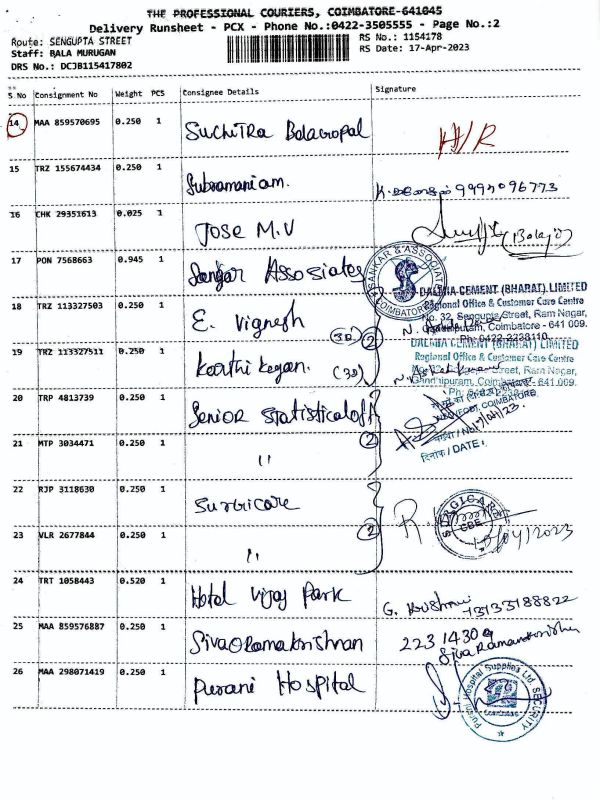 THE PROFESSIONAL COURIERS, COIMBATORE-641045
Delivery Runsheet - PCX - Phone No.:0422-3505555 - Page No.:2
Route: SENGUPTA STREET
Staff: BALA MURUGAN
DRS No.: DCJB115417802
RS No.: 1154178
RS Date: 17-Apr-2023
S.No Consignment No Weight PCS Consignee Details Signature
14 MAA 859570695 0.250 1 Suchitra Balagopal H/R
15 TRZ 155674434 0.250 1 Subramaniam. 9994096773
16 CHK 29351613 0.025 1 Jose M.V (Balaji)
17 PON 7568663 0.945 1 Sankar Assosiates
SANKAR & ASSOCIATES
COIMBATORE
DALMIA CEMENT (BHARAT) LIMITED
Regional Office & Customer Care Centre
No. 32, Sengupta Street, Ram Nagar,
Gandhipuram, Coimbatore - 641 009.
Ph: 0422-2238110
18 TRZ 113327503 0.250 1 E. Vignesh (32) 2
DALMIA CEMENT (BHARAT) LIMITED
Regional Office & Customer Care Centre
Street, Ram Nagar,
Gandhipuram, Coimbatore - 641 009.
19 TRZ 113327511 0.250 1 Karthikeyan. (32)
20 TRP 4813739 0.250 1 Senior Statistical off 2
COIMBATORE
दिनांक / DATE :
21 MTP 3034471 0.250 1 "
22 RJP 3118630 0.250 1 Surgicare 2
SURGICARE
CBE
23 VLR 2677844 0.250 1 "
24 TRT 1058443 0.520 1 Hotel Vijay Park G. Krishna
25 MAA 859576887 0.250 1 Sivaramakrishnan 223 14309
Siva Ramakrishnan
26 MAA 298071419 0.250 1 Purani Hospital
Purani Hospital Supplies Ltd
SECURITY